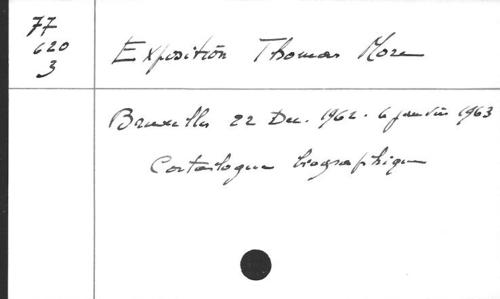 77
620
3
Exposition Thomas More
Bruxelles 22 Dec. 1962 - 6 janvier 1963
Catalogue biographique